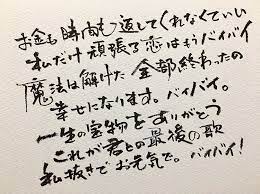 お金も時間も返してくれなくていい
私だけ頑張る恋はもうバイバイ
魔法は解けた 全部終わったの
幸せになります。バイバイ。
一生の宝物をありがとう
これが君との最後の歌
私抜きでお元気で。バイバイ!